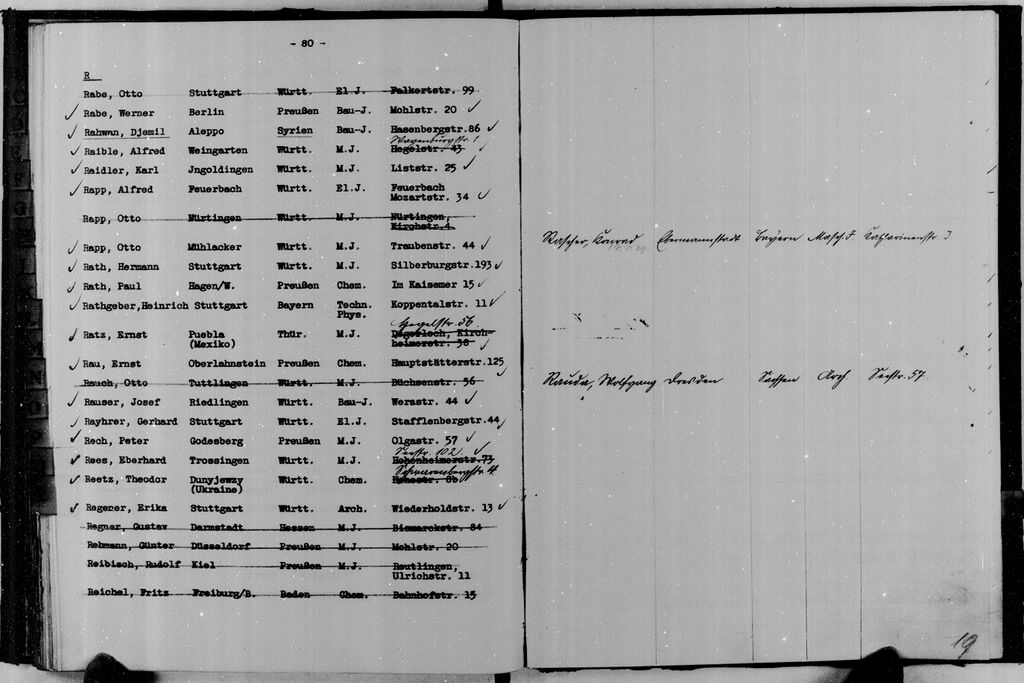 - 80 -
R
Rabe, Otto Stuttgart Württ. El J. Falkertstr. 99
Rabe, Werner Berlin Preußen Bau-J. Mohlstr. 20 ✓
Rahwan, Djemil Aleppo Syrien Bau-J. Hasenbergstr.86 ✓
Wagenburgstr. 1
Raible, Alfred Weingarten Württ. M.J. Hegelstr. 43
Raidler, Karl Jngoldingen Württ. M.J. Liststr. 25 ✓
Rapp, Alfred Feuerbach Württ. El.J. Feuerbach
Mozartstr. 34 ✓
Rapp, Otto Nürtingen Württ. M.J. Nürtingen,
Kirchstr.4
Rapp, Otto Mühlacker Württ. M.J. Traubenstr. 44 ✓
Rath, Hermann Stuttgart Württ. M.J. Silberburgstr.193 ✓
Rath, Paul Hagen/W. Preußen Chem. Im Kaisemer 15 ✓
Rathgeber,Heinrich Stuttgart Bayern Techn. Koppentalstr. 11 ✓
Phys.
Hegelstr. 56
Ratz, Ernst Puebla Thür. M.J. Degerloch, Kirch-
(Mexiko) heimerstr. 38 ✓
Rau, Ernst Oberlahnstein Preußen Chem. Hauptstätterstr.125
Rauch, Otto Tuttlingen Württ. M.J. Büchsenstr. 56
Rauser, Josef Riedlingen Württ. Bau-J. Werastr. 44 ✓
Rayhrer, Gerhard Stuttgart Württ. El.J. Stafflenbergstr.44
Rech, Peter Godesberg Preußen M.J. Olgastr. 57 ✓
Seestr. 102 ✓
Rees, Eberhard Trossingen Württ. M.J. Hohenheimerstr.73
Schwarenbergstr. 4
Reetz, Theodor Dunyjewzy Württ. Chem. Hohestr. 86
(Ukraine)
Regener, Erika Stuttgart Württ. Arch. Wiederholdstr. 13 ✓
Regner, Gustav Darmstadt Hessen M.J. Bismarckstr. 84
Rehmann, Günter Düsseldorf Preußen M.J. Mohlstr. 20
Reibisch, Rudolf Kiel Preußen M.J. Reutlingen,
Ulrichstr. 11
Reichel, Fritz Freiburg/B. Baden Chem. Bahnhofstr. 15
Rascher, Konrad Ebermannstadt Bayern Masch.J. Katharinenstr. 3
Rauda, Wolfgang Dresden Sachsen Arch. Seestr. 57
19